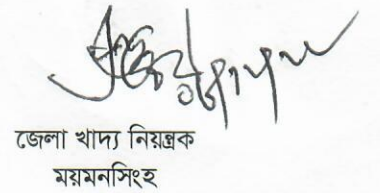 জেলা খাদ্য নিয়ন্ত্রক
ময়মনসিংহ